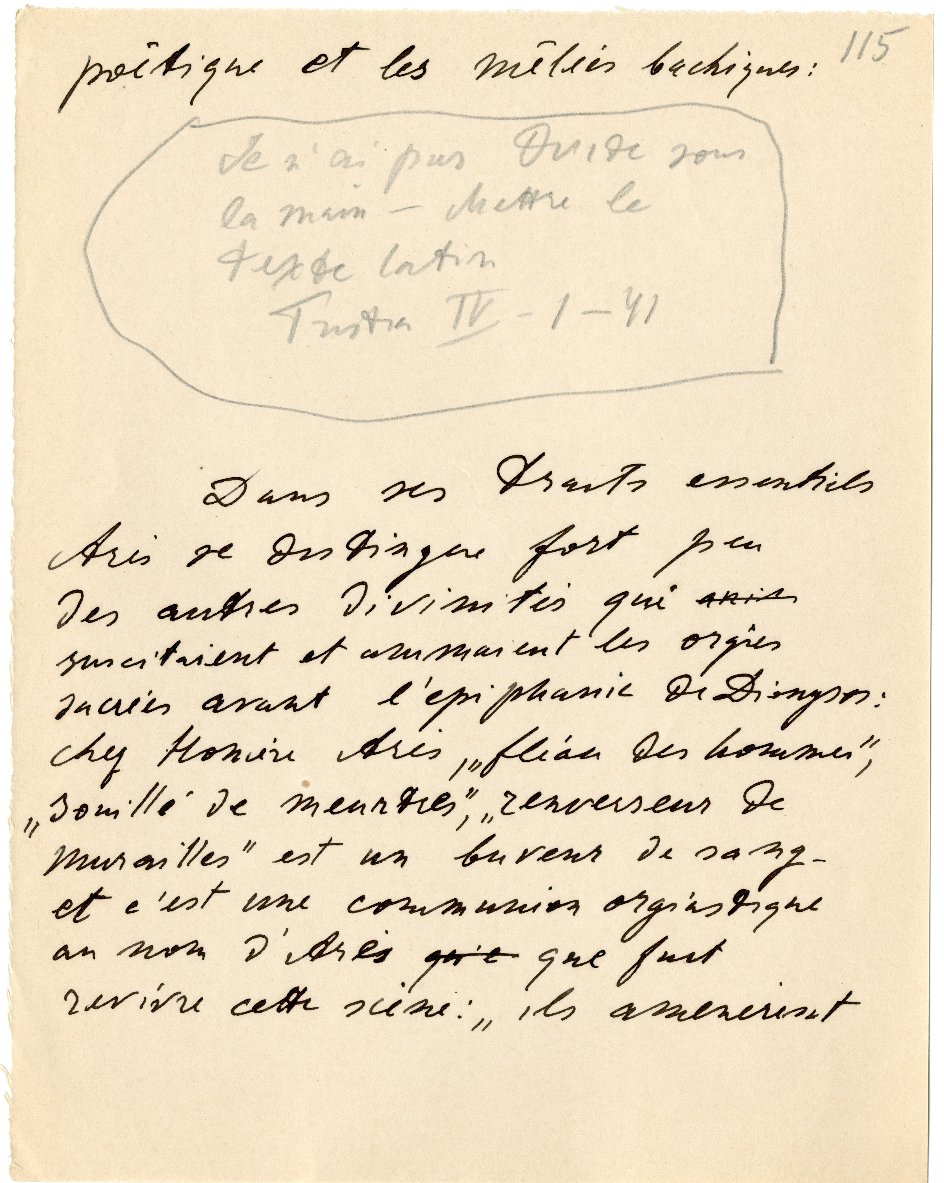 115
poëtique et les mêlées bachiques:
Je n'ai pas Ovide sous
la main – Mettre le
texte latin
Tristia IV – 1 – 41
Dans ses traits essentiels
Arès se distingue fort peu
des autres divinités qui
suscitaient et animaient les orgies
sacrées avant l'épiphanie de Dionysos:
chez Homère Arès, „fléau des hommes",
„souillé de meurtres", „renverseur de
murailles" est un buveur de sang –
et c'est une communion orgiastique
au nom d'Arès que fait
revivre cette scène: „ils amenèrent